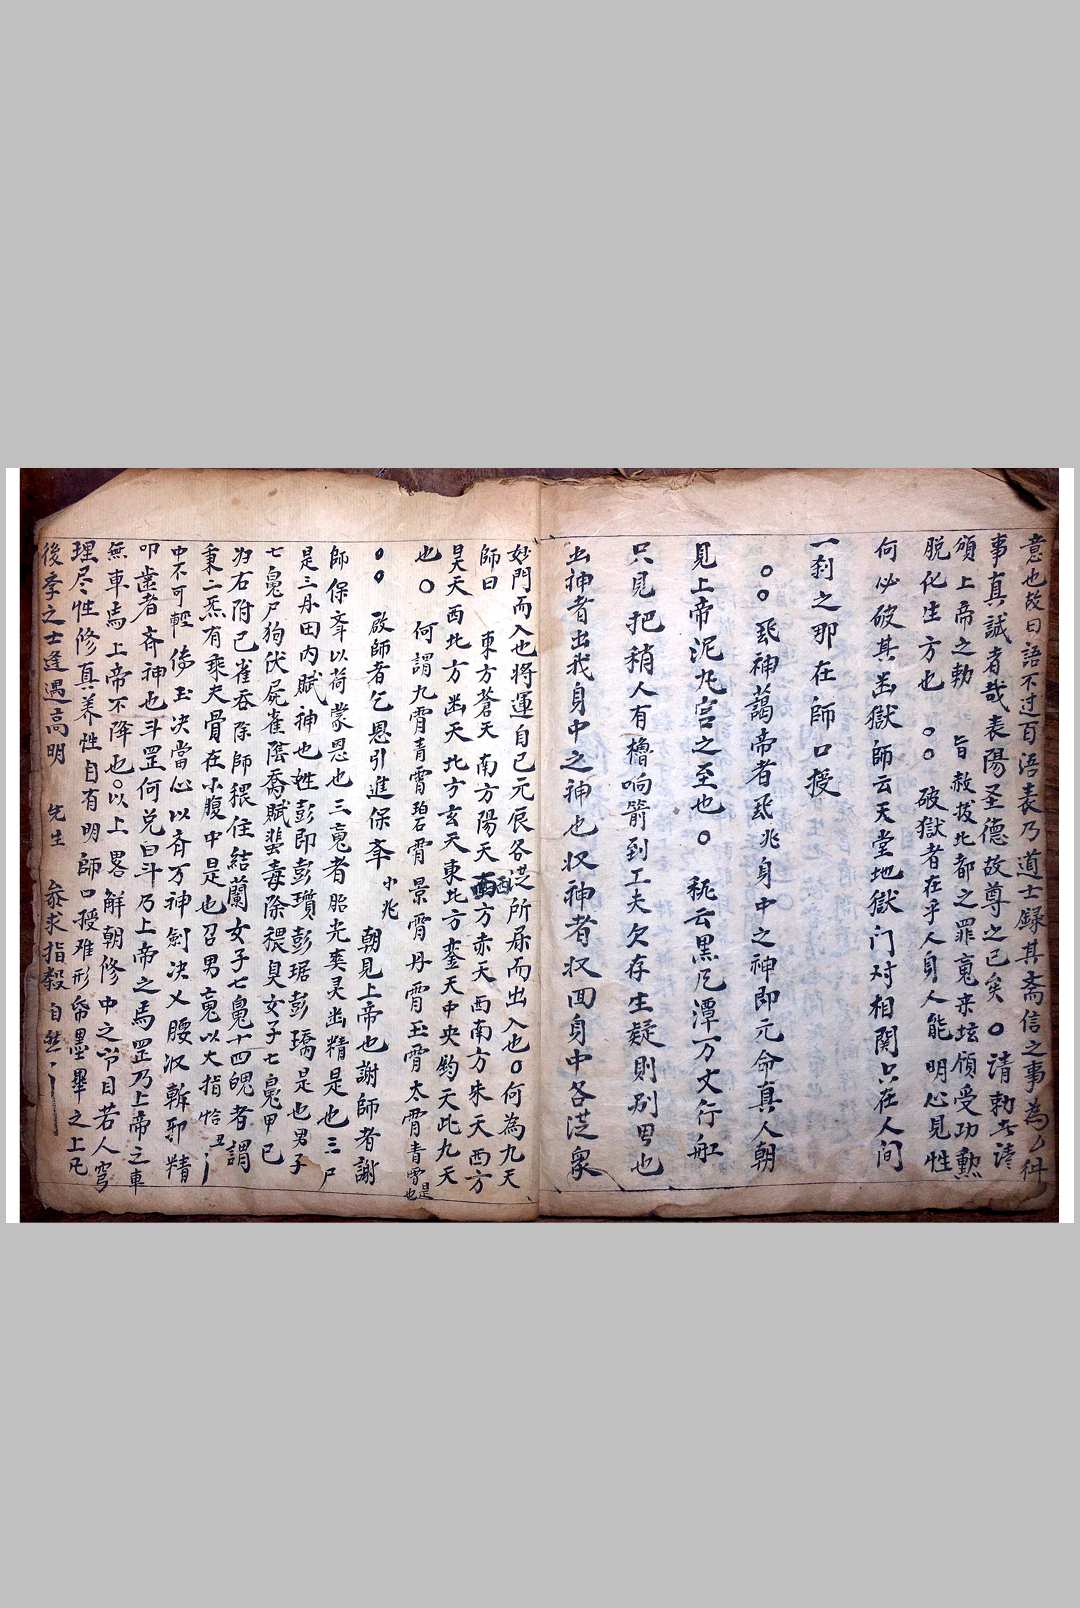 意也故曰語不过百浯表乃道士録其斋信之事為
事真誠者哉表陽圣德故尊之已矣〇請勅者請
頒上帝之勅 旨赦拔北都之罪䰟来坛領受功勲
脱化生方也 〇〇破獄者在乎人身人能明心見性
何必破其幽獄師云天堂地獄门对相関只在人间
一刹之那在師口授
〇〇飛神謁帝者飛兆身中之神即元命真人朝
見上帝泥丸宫之至也〇 秘云黒潭万丈行舡
只見把稍人有櫓响箭到工夫欠存生疑則别 也
出神者出我身中之神也収神者収囬身中各泛衆
妙門而入也將運自已元辰各泛所 而出入也〇何為九天
師曰 東方蒼天 南方陽天 西南方赤天 西南方朱天 西方
昊天西北方幽天北方玄天東北方 天中央鈞天此九天
也〇 何謂九霄青霄碧霄景霄丹霄玉霄太霄青霄是也
〇〇 啟師者乞恩引進保奉小兆 朝見上帝也謝師者謝
師保奉以荷蒙恩也三䰟者胎光爽灵幽精是也三尸
是三丹田内賊神也姓彭即彭瓆彭琚彭瑀是也男子
七䰟尸狗伏屍雀陰吞賊蜚毒除穢臭女子七䰟甲已
为右附己雀吞除師穢住結蘭女子七䰟十四魄者謂
秉二炁有乘夫骨在小腹中是也召男䰟以大指恰丑
中不可輕傷玉决當心以斉万神剑决乂腰収斬邪精
叩歯者斉神也斗罡何兑曰斗乃上帝之馬罡乃上帝之車
無車馬上帝不降也〇以上畧解朝修中之节目若人穹
理尽性修真养性自有明師口授难形帋墨畢之上也
後季之士逢遇高明 先生 叅求指 自然